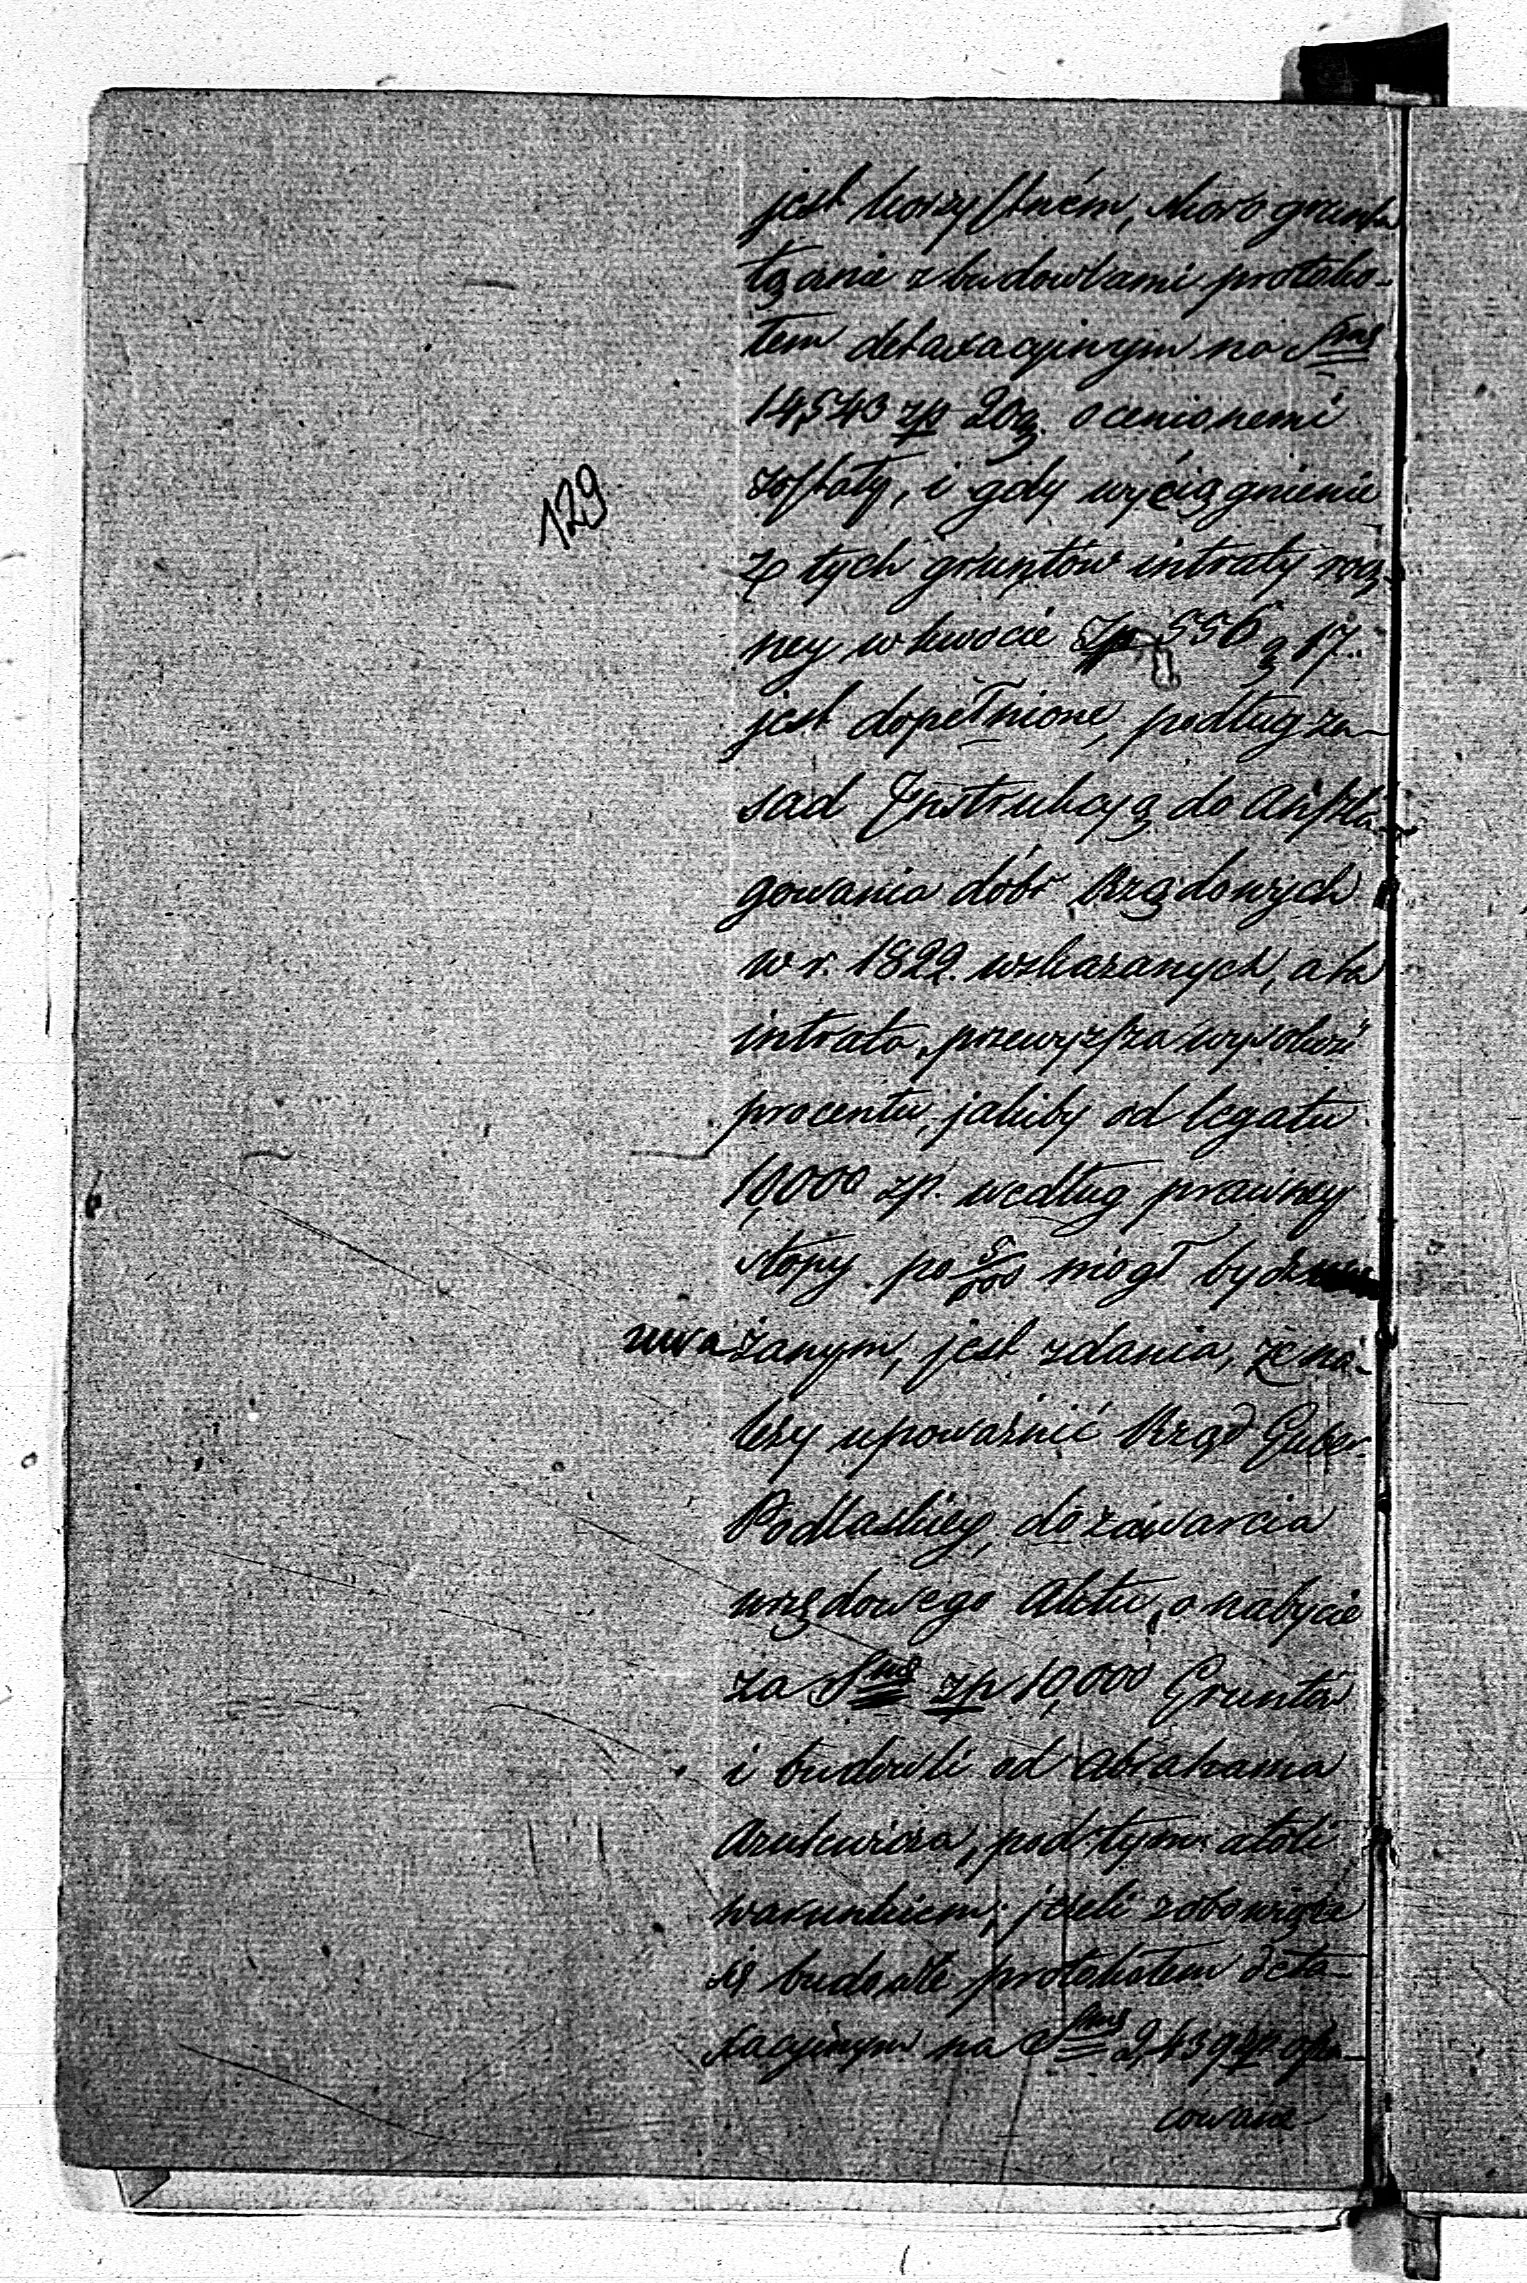 jest korzystném, skoro grunta
łącznie z budowlami protoko-
łem detaxacyjnym na Smę
14,543 zp 20 g. ocenionemi
zostały, i gdy wyciągnienie
129
z tych gruntów intraty rocz-
ney w kwocie Zp 556 g 17.
jest dopełnione, podług za-
sad Instrukcyą do Anszla-
gowania dóbr Rządowych
w r. 1822. wskazanych, a ta
intrata, przewyższa wysokość
procentu, jakiby od legatu
10,000 zp. według prawney
stopy po 5/000 mógł bydź
uważanym, jest zdania, że na-
leży upoważnić Rząd Guber.
Podlaskiey, do zawarcia
urzędowego Aktu, o nabycie
za Smę zp 10,000 Gruntów
i budowli od Abrahama
pod tym atoli
warunkiem; jeżeli zobowiąże
się budowle protokołem deta-
xacyjnym na Smę 2,439 zp osza-
cowane